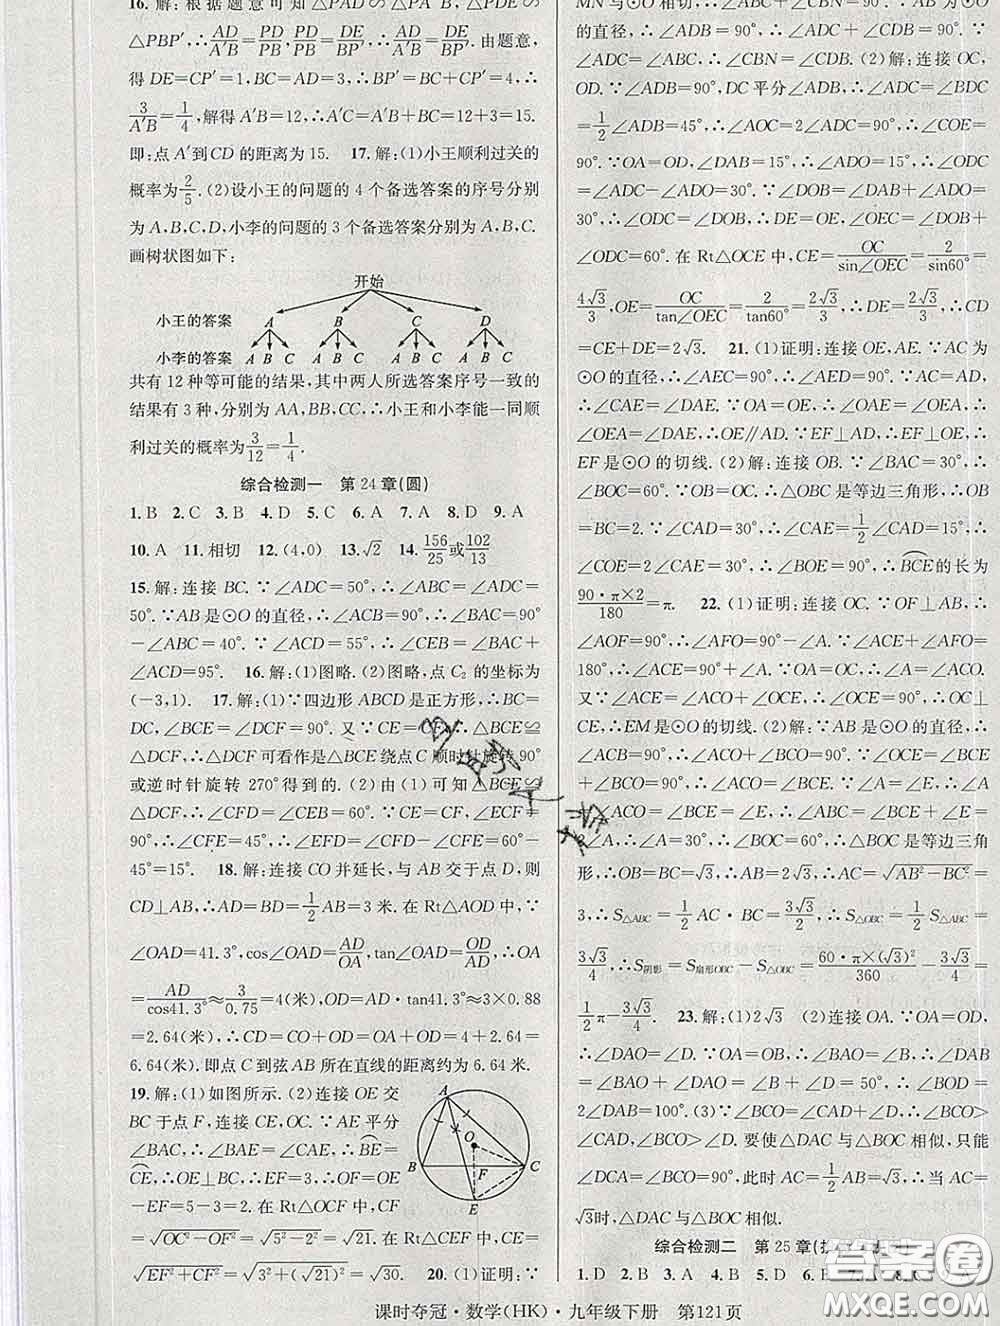 16. 解:根据题意可知△PAD∽△PA′B,△PDE∽
△PBP′,∴AD/A′B=PD/PB,PD/PB=DE/BP′,∴AD/A′B=DE/BP′.由题意,
得 DE=CP′=1,BC=AD=3,∴BP′=BC+CP′=4,∴
3/A′B=1/4,解得A′B=12,∴A′C=A′B+BC=12+3=15.
即:点 A′到CD 的距离为 15. 17.解:(1)小王顺利过关的
概率为2/5.(2)设小王的问题的 4 个备选答案的序号分别
为 A,B,C,D,小李的问题的 3 个备选答案分别为 A,B,C.
画树状图如下:
开始
小王的答案 A B C D
小李的答案 A B C A B C A B C A B C
共有 12 种等可能的结果,其中两人所选答案序号一致的
结果有 3 种,分别为 AA,BB,CC,∴小王和小李能一同顺
利过关的概率为3/12=1/4.
综合检测一 第 24 章(圆)
1.B 2.C 3.B 4.D 5.C 6.A 7.A 8.D 9.A
10.A 11.相切 12.(4,0) 13.√2 14.156/25或102/13
15.解:连接 BC.∵∠ADC=50°,∴∠ABC=∠ADC=
50°.∵AB是⊙O 的直径,∴∠ACB=90°,∴∠BAC=90°
−∠ABC=40°.∵∠ACD=55°,∴∠CEB=∠BAC+
∠ACD=95°. 16.解:(1)图略.(2)图略,点 C₂ 的坐标为
(−3,1). 17.解:(1)∵四边形 ABCD 是正方形,∴BC=
DC,∠BCE=∠DCF=90°.又∵CE=CF,∴△BCE≌
△DCF,∴△DCF 可看作是△BCE 绕点 C 顺时针旋转 90°
或逆时针旋转 270°得到的.(2)由(1)可知△BCE≌
△DCF,∴∠CFD=∠BEC=60°.∵CE=CF,∠ECF=
90°,∴∠CFE=45°,∴∠EFD=∠CFD−∠CFE=60°−
45°=15°. 18.解:连接 CO 并延长,与 AB 交于点 D,则
CD⊥AB,∴AD=1/2AB=3 米.在 Rt△AOD 中,∵
∠OAD=41.3°,cos∠OAD=AD/OA,tan∠OAD=OD/AD,∴OA
=AD/cos41.3°≈3/0.75=4(米),OD=AD·tan41.3°≈3×0.88
=2.64(米),∴CD=CO+OD=OA+OD=4+2.64=
6.64(米).即点 C 到弦 AB 所在直线的距离约为 6.64 米.
19.解:(1)如图所示.(2)连接 OE 交
BC 于点 F,连接 OC,CE.∵AE 平分
∠BAC,∴∠BAE=∠CAE,∴BE=
CE,∴OE⊥BC,EF=3,∴OF=OE
−EF=5−3=2.在 Rt△OCF 中,CF
=√OC²−OF²=√5²−2²=√21.在 Rt△CEF 中,CE=
√EF²+CF²=√3²+(√21)²=√30. 20.(1)证明:∵
A
O
B F C
E
MN与⊙O 相切,
=∠ADB=90°,
∠ADC,∴∠ABC=∠CBN=∠CDB.(2)解:连接 OC,
OD.∵∠ADB=90°,DC 平分∠ADB,∴∠ADC=∠BDC
=1/2∠ADB=45°,∴∠AOC=2∠ADC=90°,∴∠COE=
90°.∵OA=OD,∠DAB=15°,∴∠ADO=15°,∴∠ODC
=∠ADC−∠ADO=30°.∵∠DOB=∠DAB+∠ADO=
30°,∴∠ODC=∠DOB,∴DE=OE,∠OEC=∠DOB+
∠ODC=60°.在 Rt△OCE 中,CE=OC/sin∠OEC=2/sin60°=
4√3/3,OE=OC/tan∠OEC=2/tan60°=2√3/3,∴DE=2√3/3,∴CD
=CE+DE=2√3. 21.(1)证明:连接 OE,AE.∵AC 为
⊙O 的直径,∴∠AEC=90°,∴AE⊥CD.∵AC=AD,
∴∠CAE=∠DAE.∵OA=OE,∴∠OAE=∠OEA,∴
∠OEA=∠DAE,∴OE∥AD.∵EF⊥AD,∴EF⊥OE,∴
EF是⊙O 的切线.(2)解:连接 OB.∵∠BAC=30°,
∴∠BOC=60°.∵OB=OC,∴△OBC 是等边三角形,∴OB
=BC=2.∵∠CAD=30°,∴∠CAE=1/2∠CAD=15°,∴
∠COE=2∠CAE=30°,∴∠BOE=90°,∴BCE的长为
90·π×2/180=π. 22.(1)证明:连接 OC.∵OF⊥AB,∴
∠AOF=90°,∴∠AFO=90°−∠A.∵∠ACE+∠AFO=
180°,∴∠ACE=90°+∠A.∵OA=OC,∴∠A=∠ACO.
又∵∠ACE=∠ACO+∠OCE,∴∠OCE=90°,∴OC⊥
CE,∴EM是⊙O 的切线.(2)解:∵AB是⊙O 的直径,∴
∠ACB=90°,∴∠ACO+∠BCO=90°.∵∠BCE+∠BCO
=90°,∴∠ACO=∠BCE,∴∠ABC=∠BCE+∠E=
2∠A,∴∠A=30°,∴∠BOC=60°,∴△BOC 是等边三角
形,∴OB=BC=√3,∴AB=2√3,∴AC=√AB²−BC²=
3,∴S△ABC=1/2AC·BC=3√3/2,∴S△OBC=1/2S△ABC=
3√3/4,∴S阴影=S扇形OBC−S△OBC=60·π×(√3)²/360−3√3/4=
1/2π−3√3/4. 23.解:(1)2√3 (2)连接 OA.∵OA=OD,
∴∠DAO=∠D.∵OA=OB,∴∠BAO=∠B,∴∠DAB
=∠BAO+∠DAO=∠B+∠D=50°,∴∠BOD=
2∠DAB=100°.(3)∵∠BCO=∠CAD+∠D,∴∠BCO>
∠CAD,∠BCO>∠D.要使△DAC与△BOC 相似,只能
∠DCA=∠BCO=90°,此时 AC=1/2AB=√3,∴当 AC=
√3时,△DAC 与△BOC 相似.
综合检测二 第 25 章
1.D 2.B 3.D 4.D
课时夺冠·数学(HK)·九年级下册 第121页
答案圈
MXQE.COM